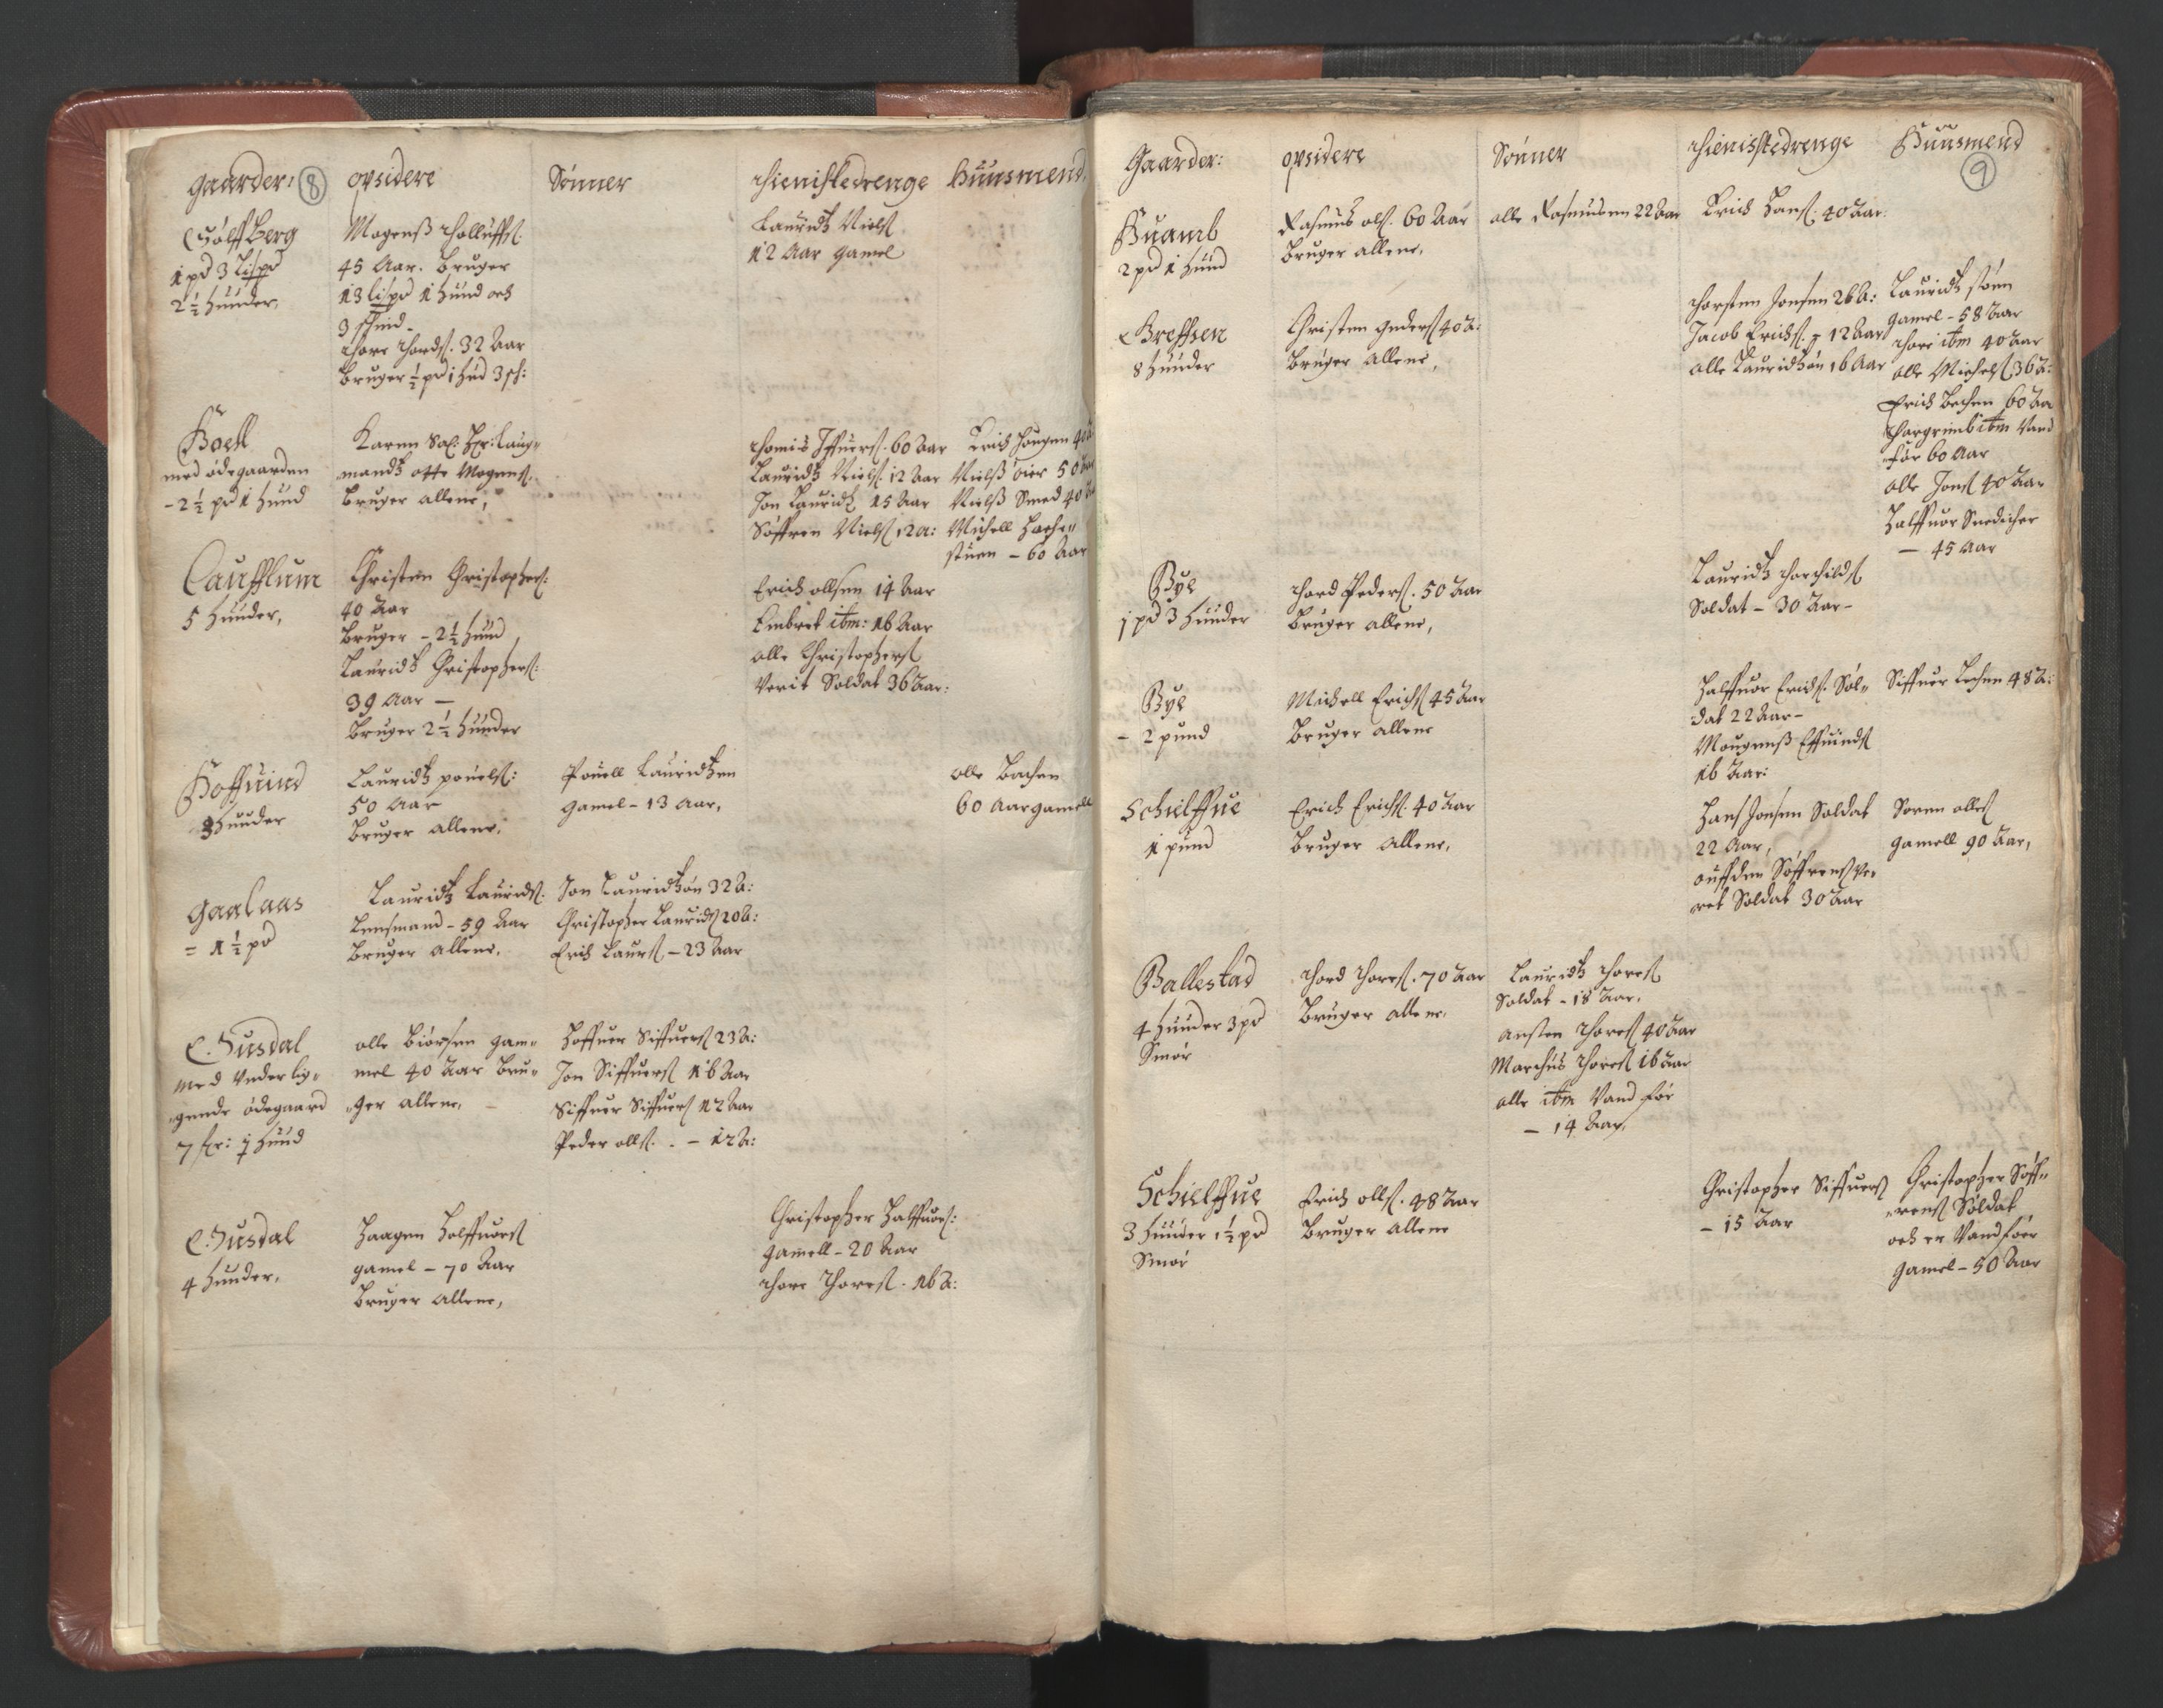 Gaarder: 8 opsidere Sönner thienistedrenge Huusmend
Sölffberg
1 pd 3 lispd
2½ Hunder,
Mogenß Tholluffs.
45 Aar. bruger
13 lispd 1 Hund och
3 skind
Thore Thords. 32 Aar
bruger ½ pd 1 Hud 3 sk:
Lauridtz Niels
12 Aar gamel
Hoell
med ödegaarden
- 2½ pd 1 Hund
Karen Sal: Hr: Laug-
mandtz otte Mogens.
bruger allene,
Thomis Iffuers. 60 Aar
Lauridtz Niels. 12 Aar
Jon Lauridtz 15 Aar
Söffren Niels 12 A:
Erich Haugen 40 A
Nielß öier 50 Aar
Nielß Smed 40 A
Michell Bache-
stuen - 60 Aar
Caufflum
5 Hunder,
Christen Christophers:
40 Aar
bruger - 2½ Hund
Lauridtz Christophers:
39 Aar -
bruger 2½ Hunder
Erich ollsen 14 Aar
Embret itm: 16 Aar
olle Christophers
Verit Soldat 36 Aar:
Hoffuind
3 Hunder
Lauridtz pouels:
50 Aar
bruger allene,
Pouell Lauridtzen
gamel - 13 Aar,
olle Bachen
60 Aar gamell
Gaalaas
= 1½ pd
Lauridtz Laurids:
Lensmand - 59 Aar
bruger allene,
Jon Lauridtzön 32 A:
Christopher Laurids 20 A:
Erich Laurs - 23 Aar
Susdal
med Vnderlig-
gende ödegaard
7 sk: 1 Hund
olle Biörsen gam-
mel 40 Aar bru-
ger allene,
Hoffuer Siffuers 23 A:
Jon Siffuers 16 Aar
Siffuer Siffuers 12 Aar
Peder olls. - 12 A:
Susdal
4 Hunder,
Haagen Halffuors
gamel - 70 Aar
bruger allene,
Christopher Halffuors:
gamell - 20 Aar
Thore Thores. 16 A:
Gaarder: opsidere Sönner thienistedrenge Huusmend
9
Huamb
2 pd 1 Hund
Rasmus ols. 60 Aar
bruger allene,
olle Rasmusen 22 Aar
Erich Hans. 40 Aar.
Breffsen
8 Hunder
Christen Peders 40 A:
bruger allene,
Thorsten Jonsen 26 A:
Jacob Erichs. 12 Aar
olle Lauridtzön 16 Aar
Lauridtz stöen
gamel - 58 Aar
Thore itm 40 Aar
olle Michels 36 A:
Erich Bechen 60 Aar
Thorgrimb itm Vand
för 60 Aar
olle Jons 40 Aar
Halffuor Snedicher
- 45 Aar
Bye
1 pd 3 Hunder
Thord Peders. 50 Aar
bruger allene,
Lauridtz Thorchilds
Soldat - 30 Aar -
Bye
- 2 pund
Michell Erichs 45 Aar
bruger allene
Halffuor Erichs. Sol-
dat 22 Aar -
Mougenß Effuinds
16 Aar:
Siffuer Lechen 48 A:
Schielffue
1 pund
Erich Erichs. 40 Aar
bruger allene,
Hans Jonsen Soldat
22 Aar,
auffden Söffrens Ve-
ret Soldat 30 Aar
Soren olles
gamell 90 Aar,
Ballestad
4 Hunder 3 pd
Smör
Thord Thores. 70 Aar
bruger allene,
Lauridtz Thores
Soldat - 18 Aar,
ansten Thores 40 Aar
Marchus Thores 16 Aar
olle itm Vand för
- 14 Aar,
Schielffue
3 Hunder 1½ pd
Smör
Erich olls. 48 Aar
bruger allene
Christopher Siffuers
- 15 Aar
Christopher Söff-
rens Soldat
och er Vandföer
gamel - 50 Aar